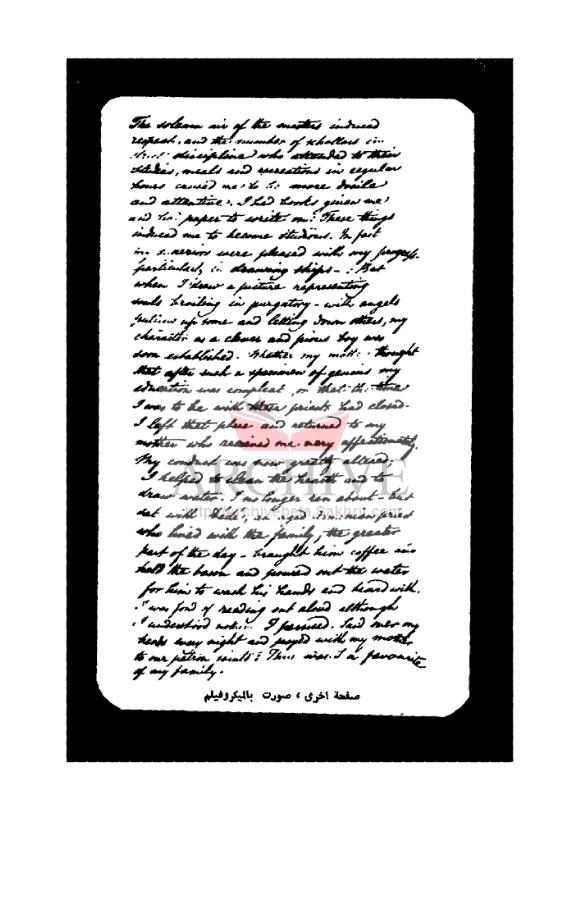 The solemn air of the masters induced
respect, and the number of schollars in
strict discipline who attended to their
studies, meals and recreations in regular
hours caused me to be more docile
and attentive. I had books given me
and paper to write on. These things
induced me to become studious. In fact
my superiors were pleased with my progress
particularly in drawing ships - But
when I drew a picture representing
souls broiling in purgatory - with angels
pulling up some and letting down others, my
character as a clever and pious boy was
soon established. Whether my thought
that after such a specimen of genius my
education was compleat or that the time
I was to be with these priests had closed.
I left that place and returned to my
mother who received me very affectionately.
My conduct was now greatly altered.
I helped to clean the hearth and to
draw water. I no longer ran about - but
sat with an aged Armenian priest
who lived with the family, the greater
part of the day - brought him coffee and
held the bason and poured out the water
for him to wash his hands and beard with.
I was fond of reading out aloud although
I understood not I perused. Said over my
beads every night and prayed with my mother
to our patron saints: Thus was I a favourite
of my family.
ARCHIVE
http://Archivebeta.Sakhrit.com
صفحة اخرى ، صورت بالميكروفيلم